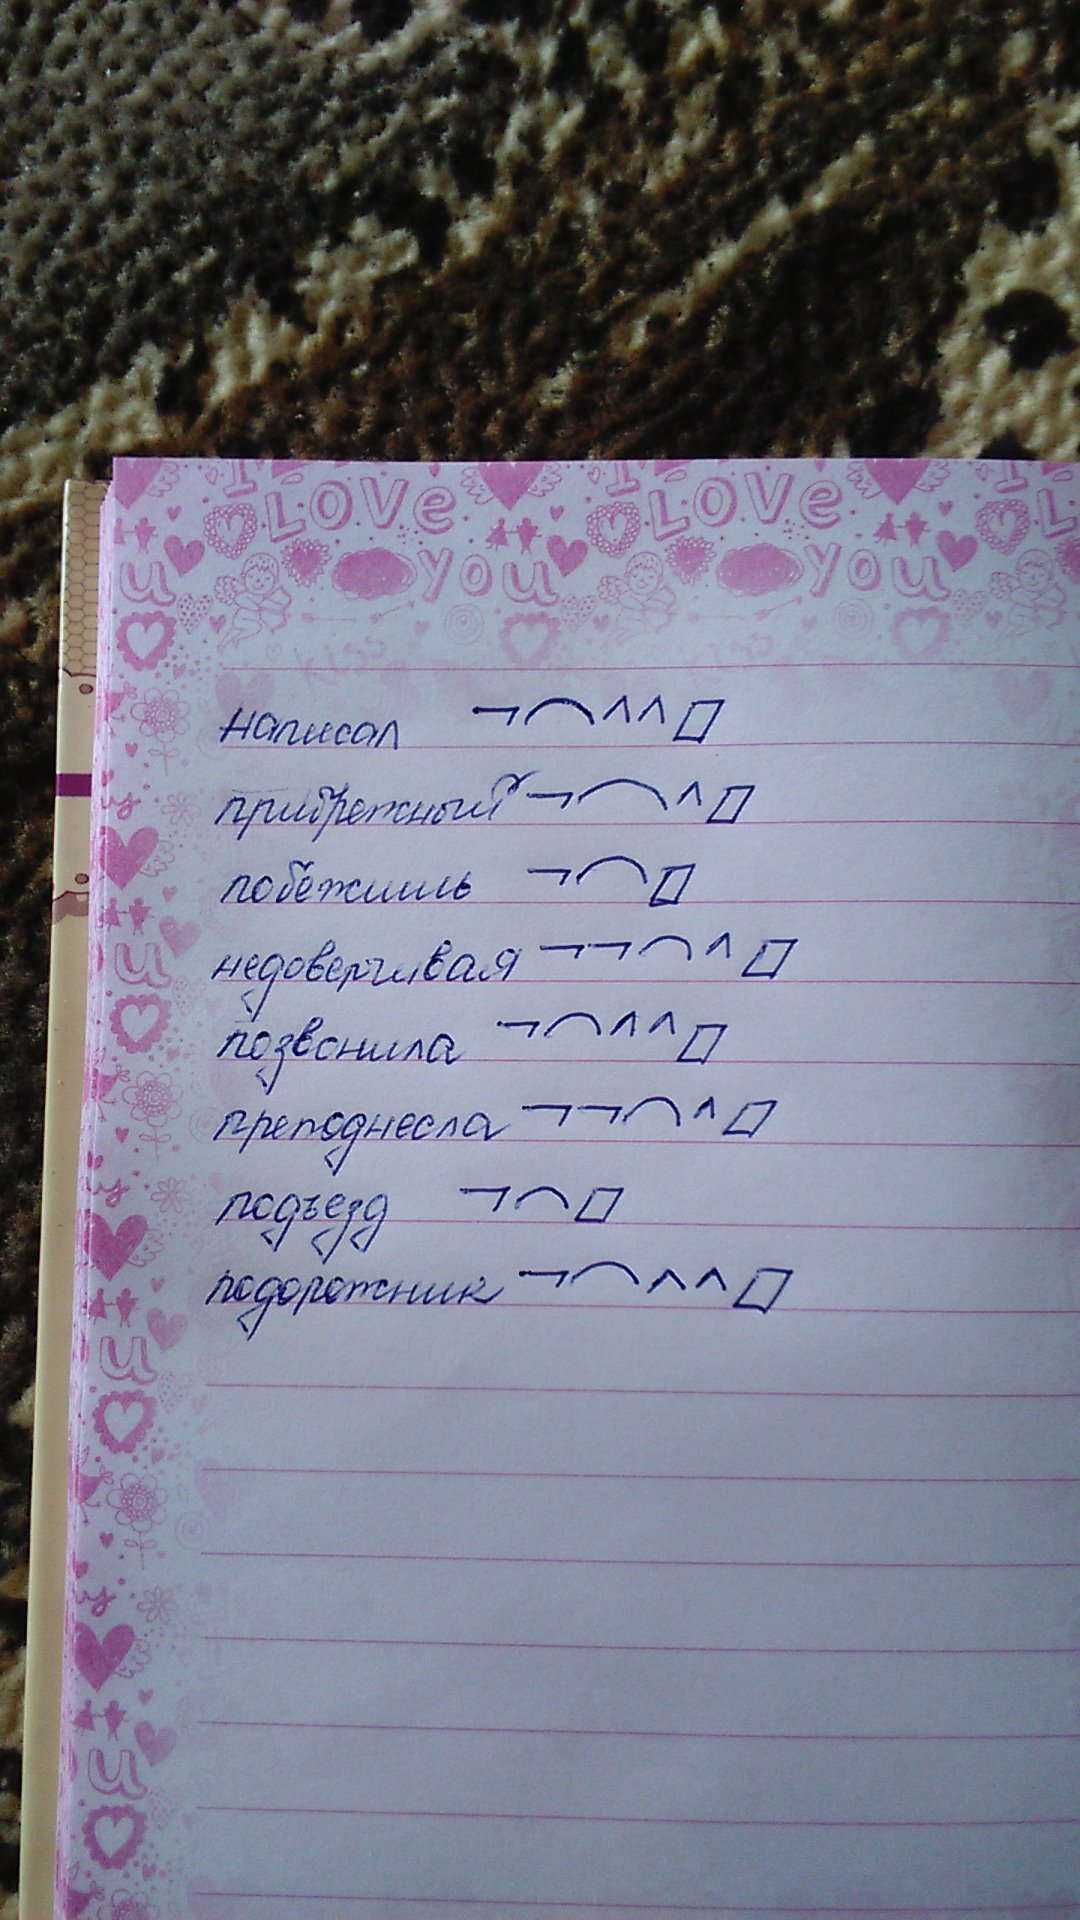 I LOVE I LOVE I L
you you
u kiss kiss
написал ¬⌒^^▱
прибрежный ¬⌒^▱
побежишь ¬⌒▱
недоверчивая ¬¬⌒^▱
позвонила ¬⌒^^▱
преподнесла ¬¬⌒^▱
подъезд ¬⌒▱
подорожник ¬⌒^^▱
u
u
u